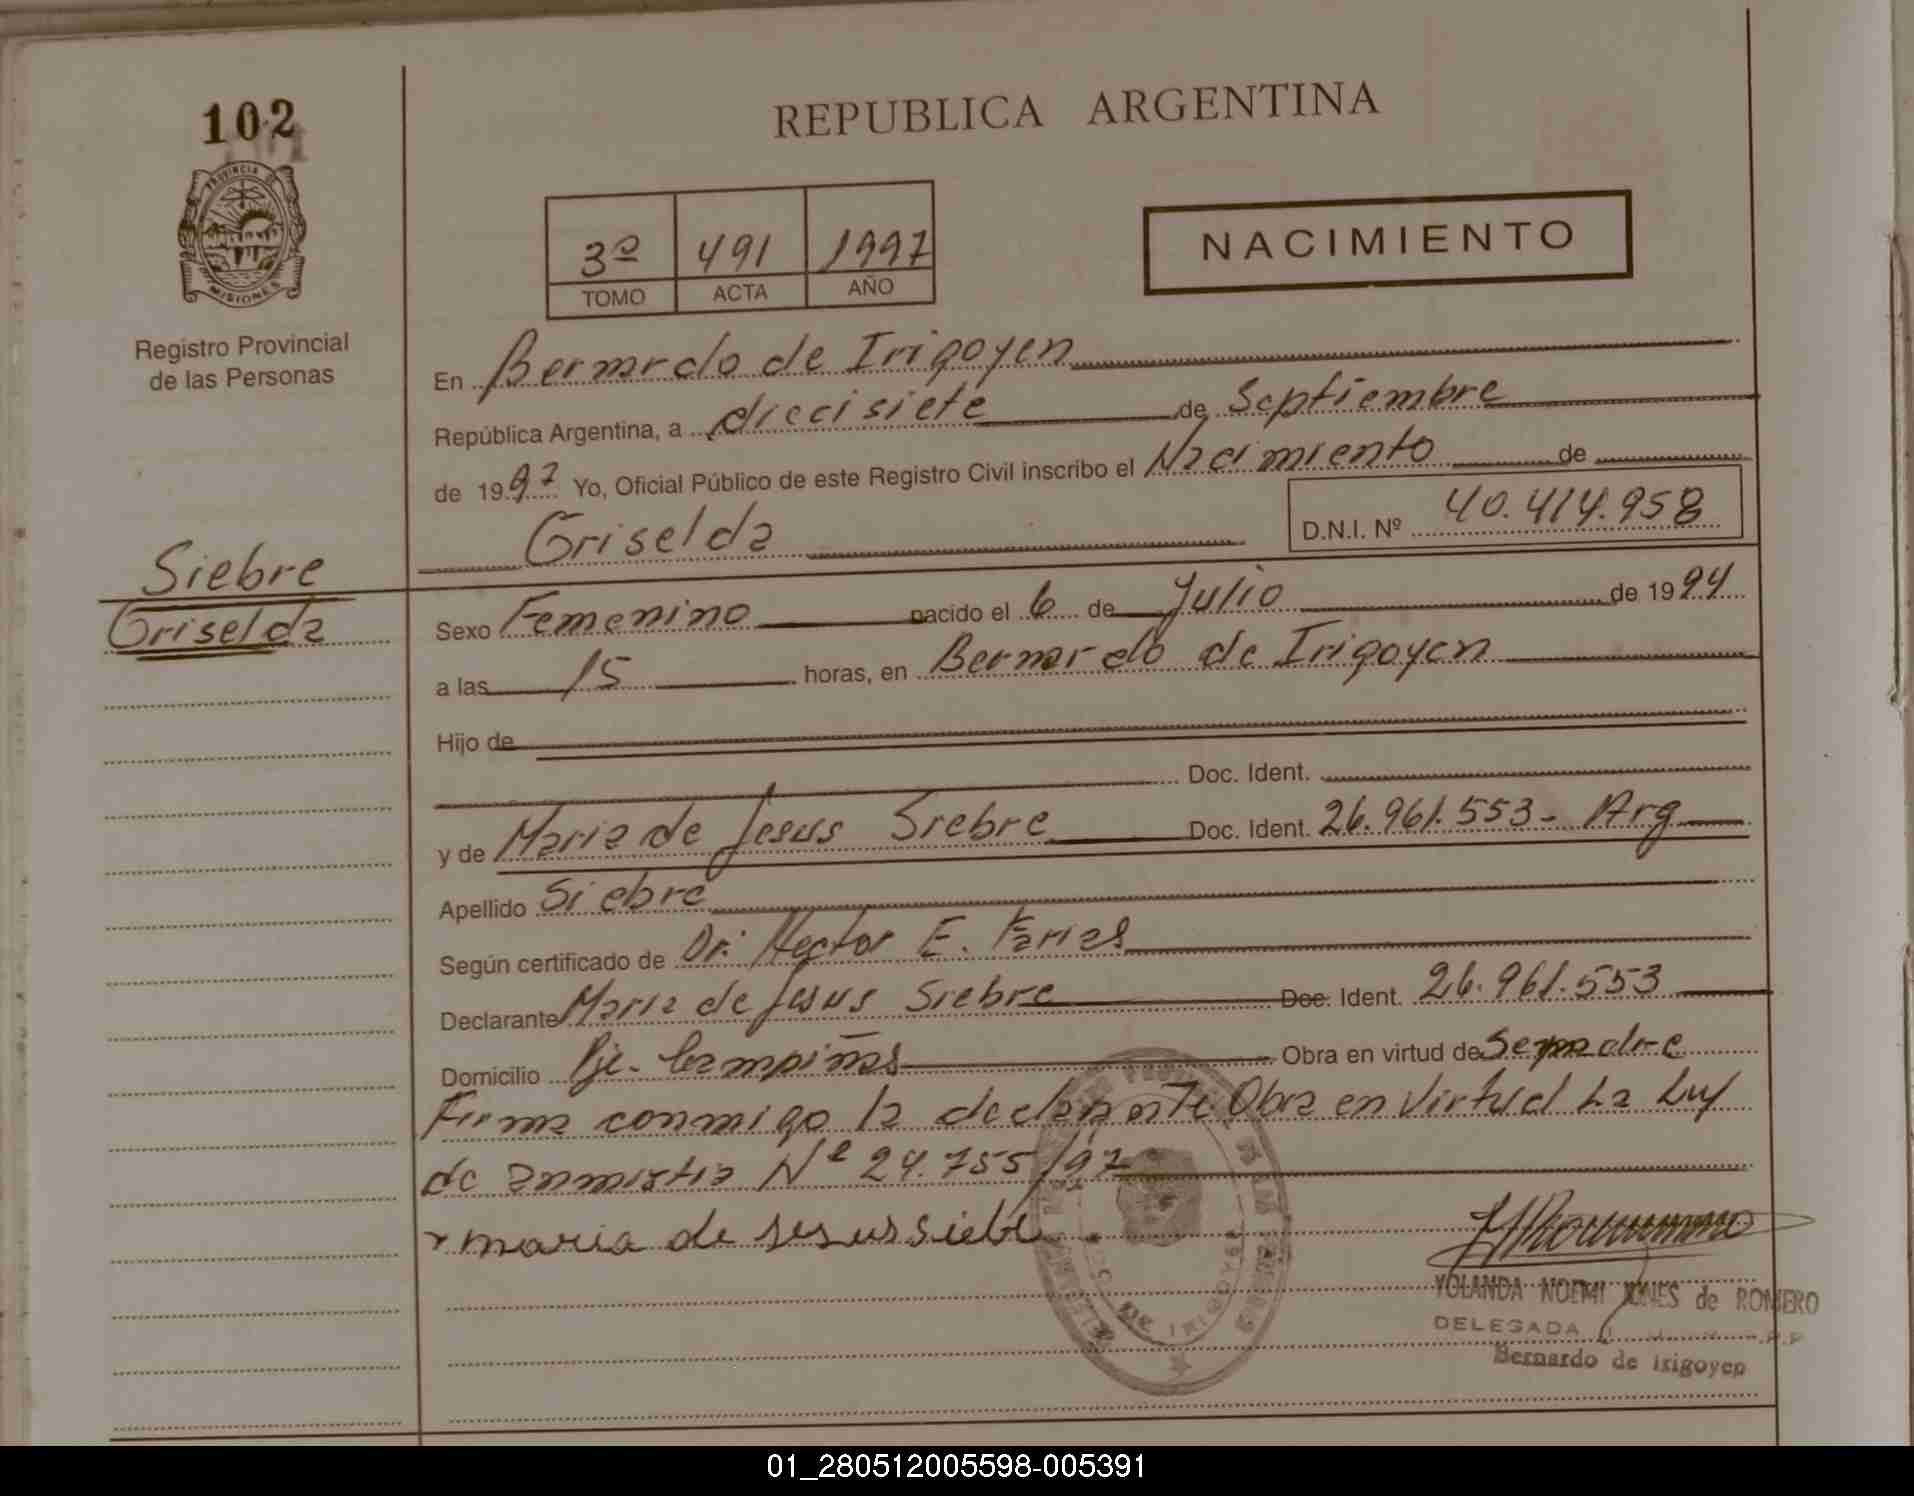 102
REPUBLICA ARGENTINA
PROVINCIA DE
MISIONES
Registro Provincial
de las Personas
3º 491 1997
TOMO ACTA AÑO
NACIMIENTO
En Bernardo de Irigoyen
República Argentina, a diecisiete de Septiembre
de 1997 Yo, Oficial Público de este Registro Civil inscribo el Nacimiento de
Griselda D.N.I. Nº 40.414.958
Siebre
Griselda
Sexo Femenino nacido el 6 de Julio de 1994
a las 15 horas, en Bernardo de Irigoyen
Hijo de
Doc. Ident.
y de Maria de Jesus Siebre Doc. Ident. 26.961.553- Arg
Apellido Siebre
Según certificado de Dr. Hector E. Farias
Declarante Maria de Jesus Siebre Doc. Ident. 26.961.553
Domicilio Pje. Campiñas Obra en virtud de Ser madre
Firma conmigo la declarante Obra en Virtud La Ley
de anmistia Nº 24.755/97
maria de jesus siebre
YOLANDA NOEMI de ROMERO
DELEGADA
Bernardo de Irigoyen
01_280512005598-005391